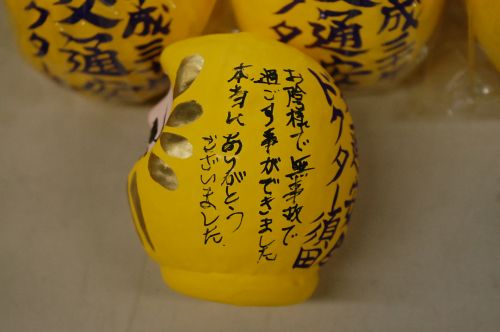 ドクター須田
お陰様で無事故で
過ごす事ができました
本当にありがとう
ございました。
成三十
交通安
ドクタ
成三
交通安
クタ